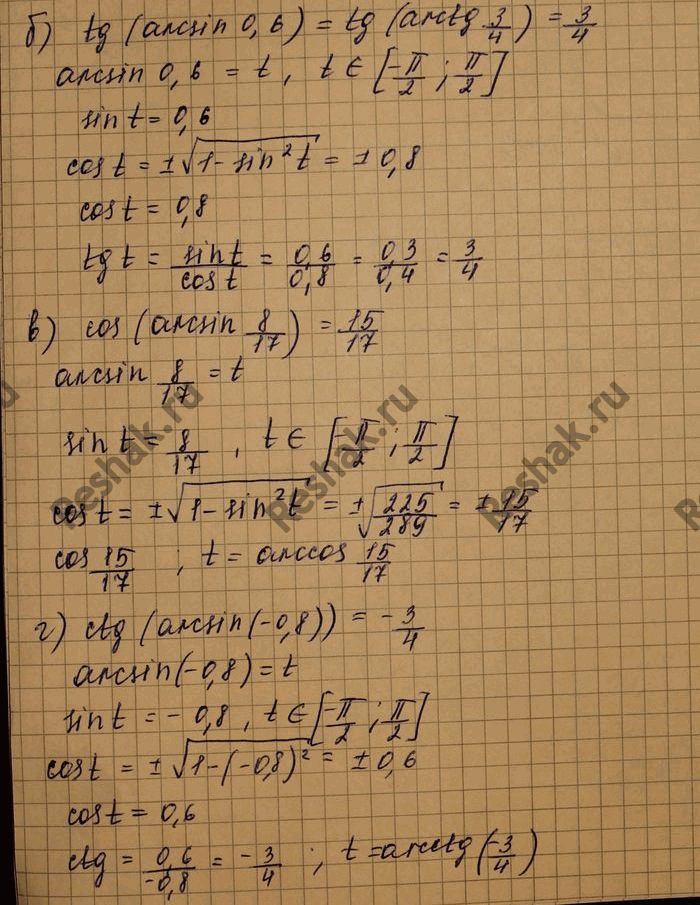 б) tg (arcsin 0,6) = tg (arctg 3/4) = 3/4
arcsin 0,6 = t , t ∈ [-π/2 ; π/2]
sin t = 0,6
cos t = ±√(1 - sin² t) = ± 0,8
cos t = 0,8
tg t = sin t/cos t = 0,6/0,8 = 0,3/0,4 = 3/4
в) cos (arcsin 8/17) = 15/17
arcsin 8/17 = t
sin t = 8/17 , t ∈ [-π/2 ; π/2]
cos t = ±√(1 - sin² t) = ±√(225/289) = ± 15/17
cos 15/17 ; t = arccos 15/17
г) ctg (arcsin(-0,8)) = - 3/4
arcsin(-0,8) = t
sin t = - 0,8 , t ∈ [-π/2 ; π/2]
cos t = ±√(1-(-0,8)²) = ± 0,6
cos t = 0,6
ctg = 0,6/-0,8 = - 3/4 ; t = arcctg (-3/4)
Reshak.ru
Reshak.ru
Reshak.ru